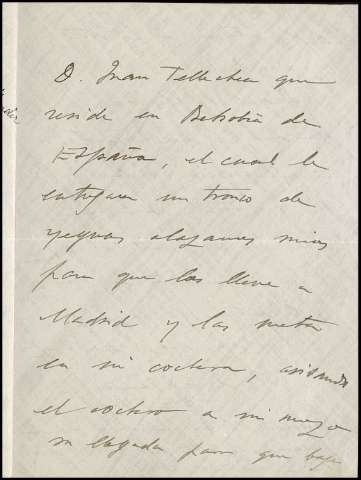 D. Juan Tellechea que
reside en Behobia de
España, el cual le
entreguen un tronco de
yeguas alazanas mias
para que las lleve a
Madrid y las meta
en mi cochera, avisando
el cochero a mi mozo
su llegada para que baje